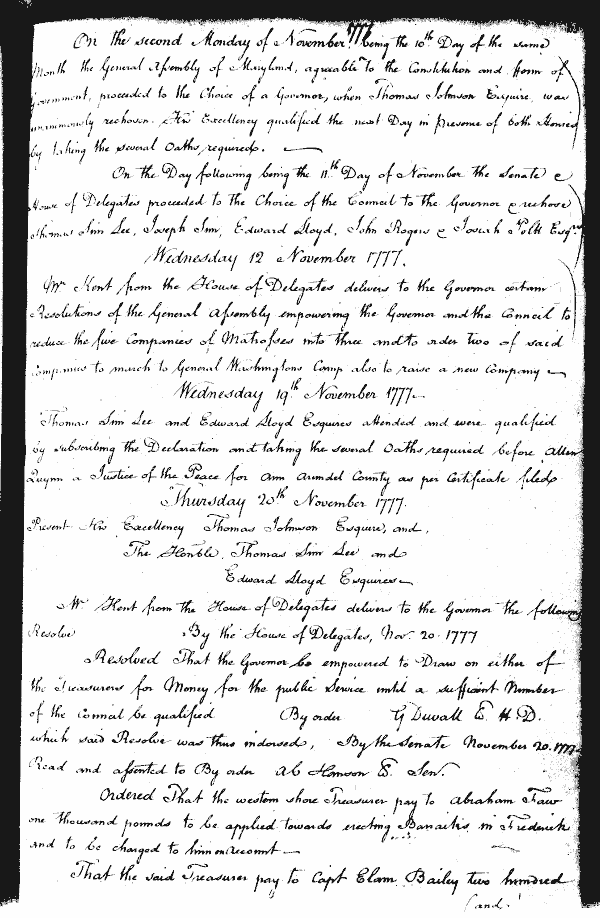 On the second Monday of November 1777 being the 10th Day of the same
Month the General Assembly of Maryland, agreeable to the Constitution and Form of
Government, proceeded to the Choice of a Governor, when Thomas Johnson Esquire, was
unanimously rechosen. His Excellency qualified the next Day in presence of both Houses
by taking the several Oaths required.
On the Day following being the 11th Day of November the Senate &
House of Delegates proceeded to the Choice of the Council to the Governor & rechose
Thomas Sim Lee, Joseph Sim, Edward Lloyd, John Rogers & Josiah Polk Esqrs
Wednesday 12 November 1777.
Mr Kent from the House of Delegates delivers to the Governor certain
Resolutions of the General Assembly empowering the Governor and the Council to
reduce the five Companies of Matrosses into three and to order two of said
Companies to march to General Washingtons Camp also to raise a new Company
Wednesday 19th November 1777.
Thomas Sim Lee and Edward Lloyd Esquires attended and were qualified
by subscribing the Declaration and taking the several Oaths required before Allen
Quynn a Justice of the Peace for Ann Arundel County as per Certificate filed
Thursday 20th November 1777.
Present His Excellency Thomas Johnson Esquire, and,
The Honble. Thomas Sim Lee and
Edward Lloyd Esquires
Mr Kent from the House of Delegates delivers to the Governor the following
Resolve By the House of Delegates, Nov. 20. 1777
Resolved That the Governor be empowered to Draw on either of
the Treasurers for Money for the public Service until a sufficient Number
of the Council be qualified By order G Duvall C. H. D.
which said Resolve was thus indorsed, By the Senate November 20. 1777
Read and assented to By order Ab Hanson C. Sen.
Ordered That the western shore Treasurer pay to Abraham Faw
one thousand pounds to be applied towards erecting Barracks in Frederick
and to be charged to him on Account
That the said Treasurer pay to Capt Elam Bailey two hundred
(and